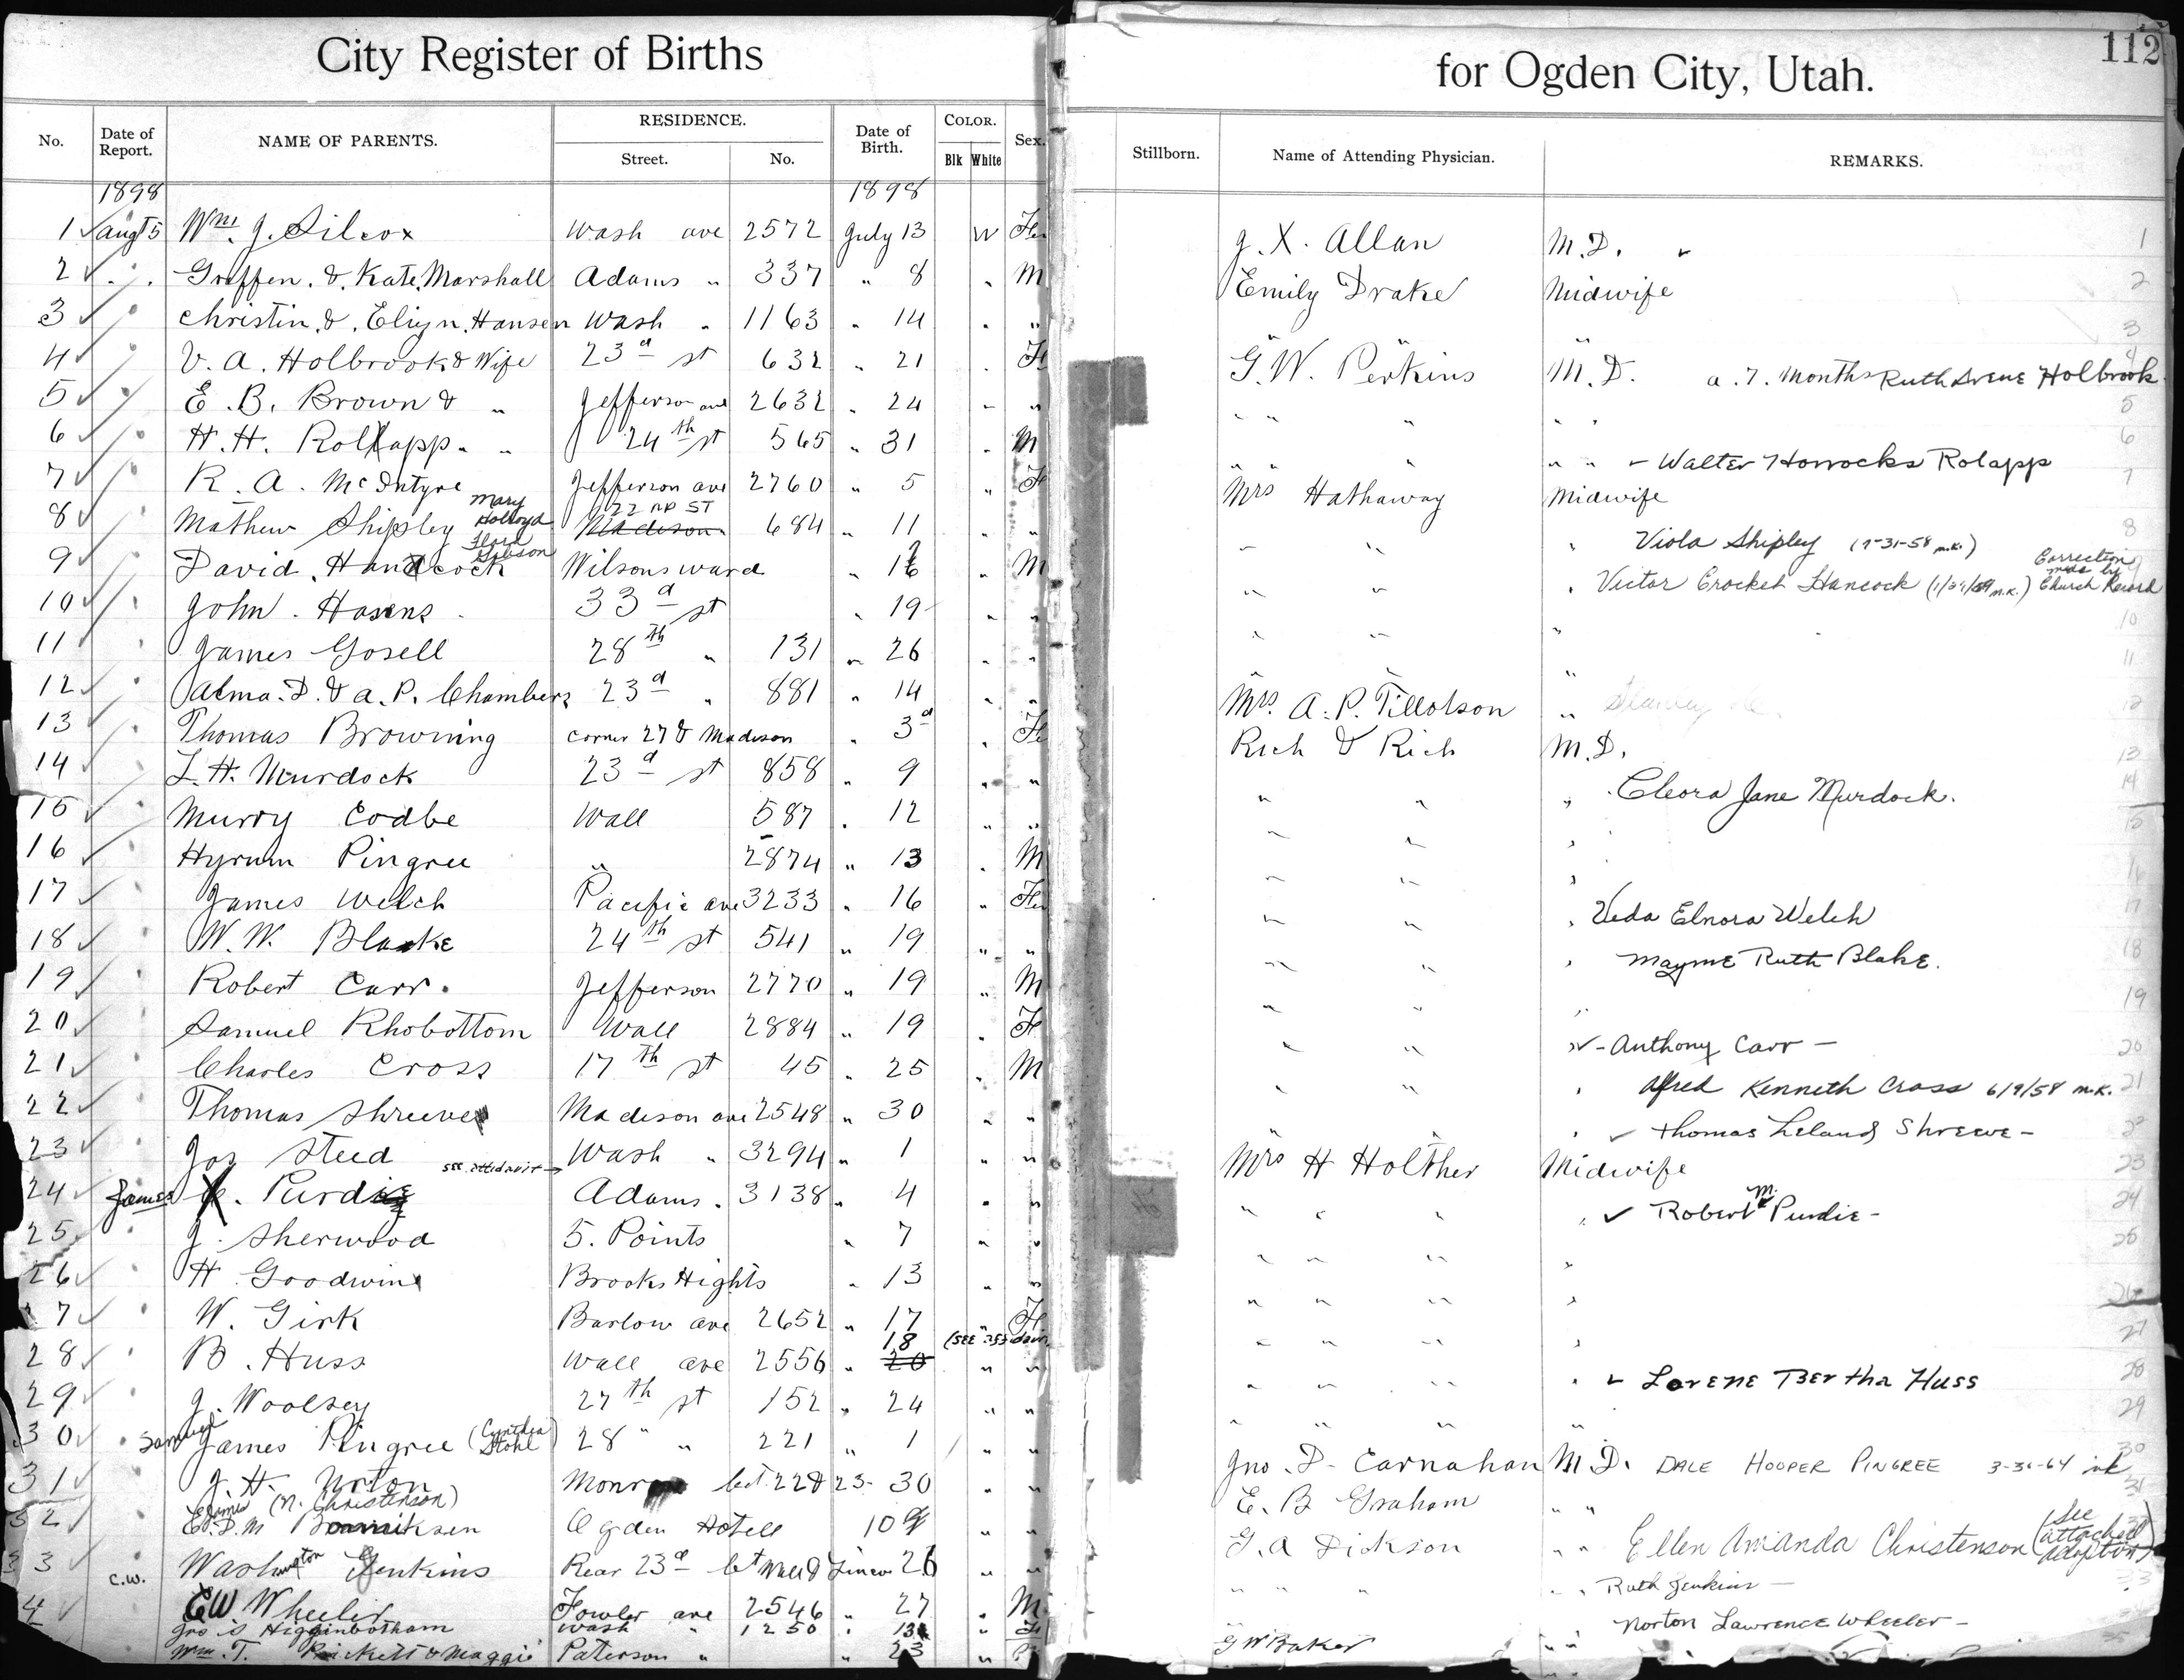 City Register of Births
for Ogden City, Utah.
112
No. Date of Report. NAME OF PARENTS. RESIDENCE. Street. No. Date of Birth. COLOR. Blk White Sex.
Stillborn. Name of Attending Physician. REMARKS.
1898 1898
1 Augt 5 Wm. J. Silcox Wash ave 2572 July 13 W Fe
2 " " Griffen. & Kate. Marshall Adams " 337 " 8 " M
3 " Christin. & . Hansen Wash " 1163 " 14 " "
4 " V. A. Holbrook & Wife 23d st 632 " 21 " Fe
5 " E. B. Brown & " Jefferson ave 2632 " 24 " "
6 " H. H. Rolapp " " 24th st 565 " 31 " M
7 " R. A. McIntyre Jefferson ave 2760 " 5 " Fe
8 " Mathew Shipley Mary Holroyd 22 nd ST Madison 684 " 11 " "
9 " David. Hancock Flora Gibson Wilsons ward " 16 " M
10 " John. Hasens 33d st " 19 " "
11 " James Gosell 28th " 131 " 26 " "
12 " Alma. D. & A. P. Chambers 23d " 881 " 14 " "
13 " Thomas Browning corner 27 & Madison " 3d " Fe
14 " L. H. Murdock 23d st 858 " 9 " "
15 " Murry Codbe Wall 587 " 12 " "
16 " Hyrum Pingree " 2874 " 13 " M
17 " James Welch Pacific ave 3233 " 16 " Fe
18 " W. W. Blake 24th st 541 " 19 " "
19 " Robert Carr. Jefferson 2770 " 19 " M
20 " Samuel Rhobottom Wall 2884 " 19 " Fe
21 " Charles Cross 17th st 45 " 25 " M
22 " Thomas Shreeve Madison ave 2548 " 30 " "
23 " Jos Steed Wash " 3294 " 1 " "
see affidavit
24 James Purdie Adams " 3138 " 4 " "
25 " J. Sherwood 5. Points " 7 " "
26 " H Goodwin Brooks Hights " 13 " "
27 " W. Girk Barlow ave 2652 " 17 " Fe
28 " B. Huss Wall ave 2556 " 18 20 (SEE " "
29 " J. Woolsey 27th st 152 " 24 " "
30 " Samuel James Pingree (Cynthia Stohl) 28 " " 221 " 1 " "
31 " J. H. Norton Monroe bet 22 & 23 - 30 " "
32 " (N. Christenson) Ogden Hotell 10 " "
33 C.W. Washington Jenkins Rear 23d bet Wall & Lincon 26 " "
4 EW Wheeler Fowler ave 2546 " 27 " M
Jno S Higginbotham Wash " 1250 " 13 " Fe
Wm. T. Rickett & Maggie Paterson " " 23 "
J. X. Allan M.D. 1
Emily Drake Midwife 2
" " " 3
G. W. Perkins M.D. a. 7. months Ruth Irene Holbrook 4
" " " " 5
" " " " Walter Horrocks Rolapp 6
Mrs Hathaway Midwife 7
" " " Viola Shipley (7-31-58 m.k.) 8
" " " Victor Crocket Hancock Correction made by Church Record
" " " 10
" " " 11
Mrs. A. P. Tillotson " Stanley 12
Rich & Rich M.D. 13
" " " Cleora Jane Murdock. 14
" " " 15
" " " 16
" " " Veda Elnora Welch 17
" " " Mayme Ruth Blake. 18
" " " 19
" " " Anthony Carr - 20
" " " Alfred Kenneth Cross 6/9/58 m.k. 21
" " " Thomas Leland Shreeve - 22
Mrs H Holther Midwife 23
" " " " Robert M. Purdie - 24
" " " " 25
" " " " 26
" " " " 27
" " " " Lorene Bertha Huss 28
" " " " 29
Jno. D. Carnahan M.D. DALE HOOPER PINGREE 30
E. B Graham " " 31
G. A Dickson " " Ellen Amanda Christenson (See attached Adoption)
" " " " " Ruth Jenkins - 33
" " " Norton Lawrence Wheeler -
G W Baker " " 35